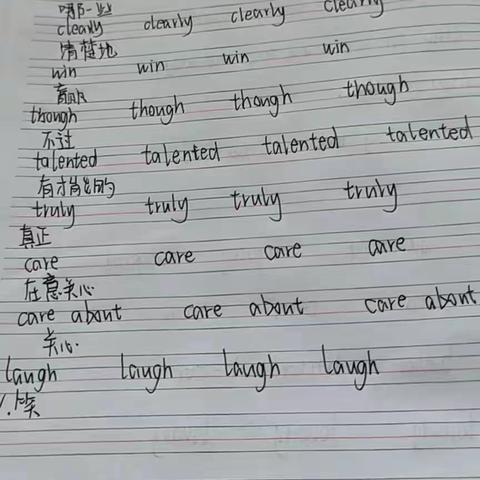 clearly clearly clearly clearly
清楚地
win win win win
赢
though though though though
不过
talented talented talented talented
有才能的
truly truly truly truly
真正
care care care care
在意关心
care about care about care about
关心.
laugh laugh laugh laugh
笑